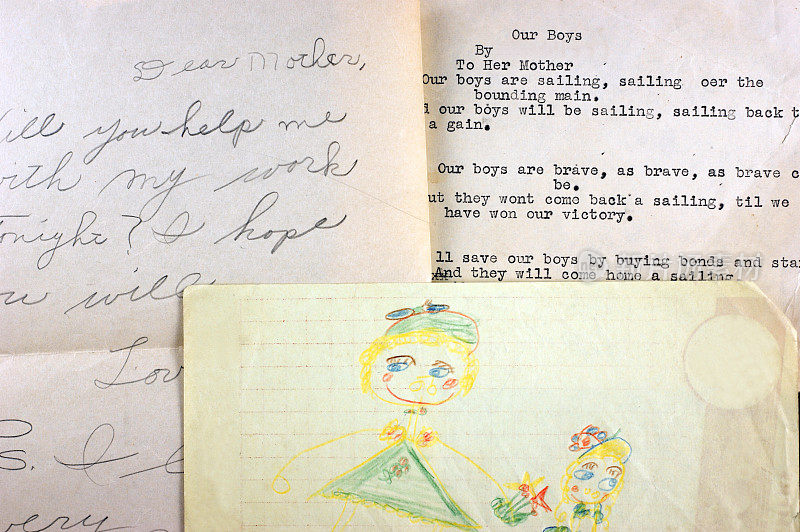 Dear Mother,
ill you help me
with my work
tonight? I hope
ou will
Lov
P.S. I
very
Our Boys
By
To Her Mother
Our boys are sailing, sailing oer the
bounding main.
d our boys will be sailing, sailing back t
a gain.
Our boys are brave, as brave, as brave c
be.
ut they wont come back a sailing, til we
have won our victory.
ll save our boys by buying bonds and sta
And they will come home a sailing